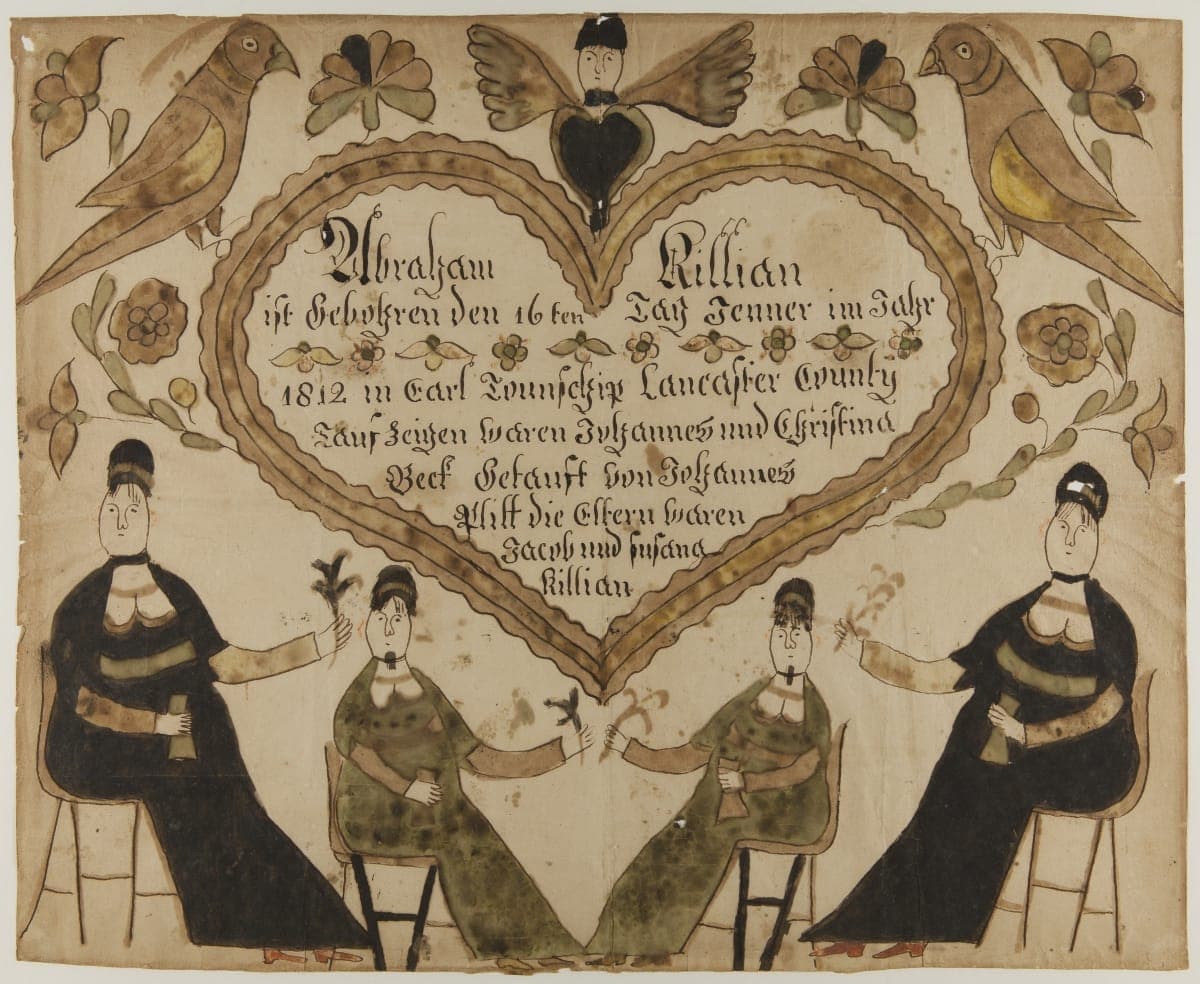 Abraham Killian
ist Gebohren den 16 ten Tag Jenner im Jahr
1812 in Earl Tounschip Lancaster County
Tauf Zeigen waren Johannes und Christina
Beck Getauft von Johannes
Plitt die Eltern waren
Jacob und susana
Killian